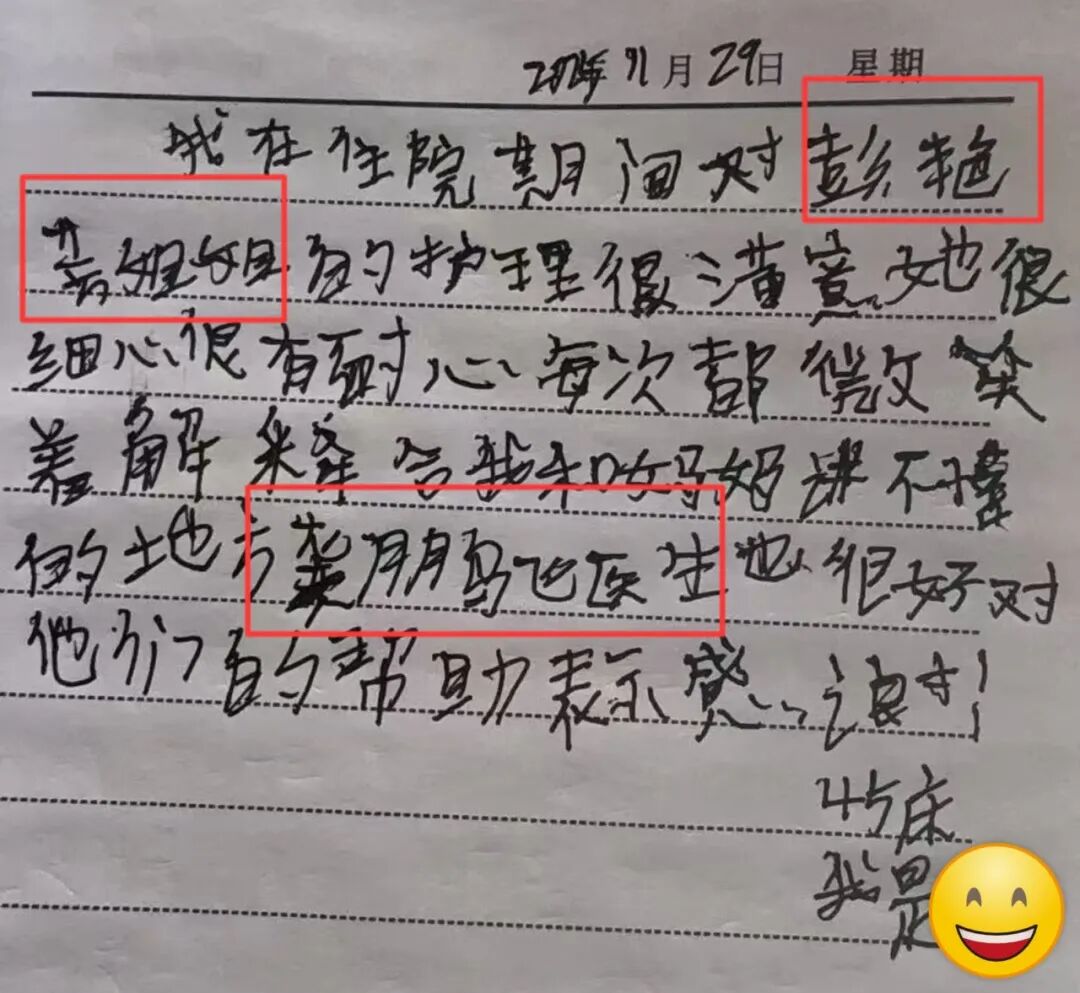 11月29日 星期
我在住院期间对彭艳
芸姐姐的护理很满意她很
细心很有耐心每次都微笑
着解释给我和妈妈听不懂
的地方龚鹏飞医生也很好对
他们的帮助表示感谢！
45床
我是